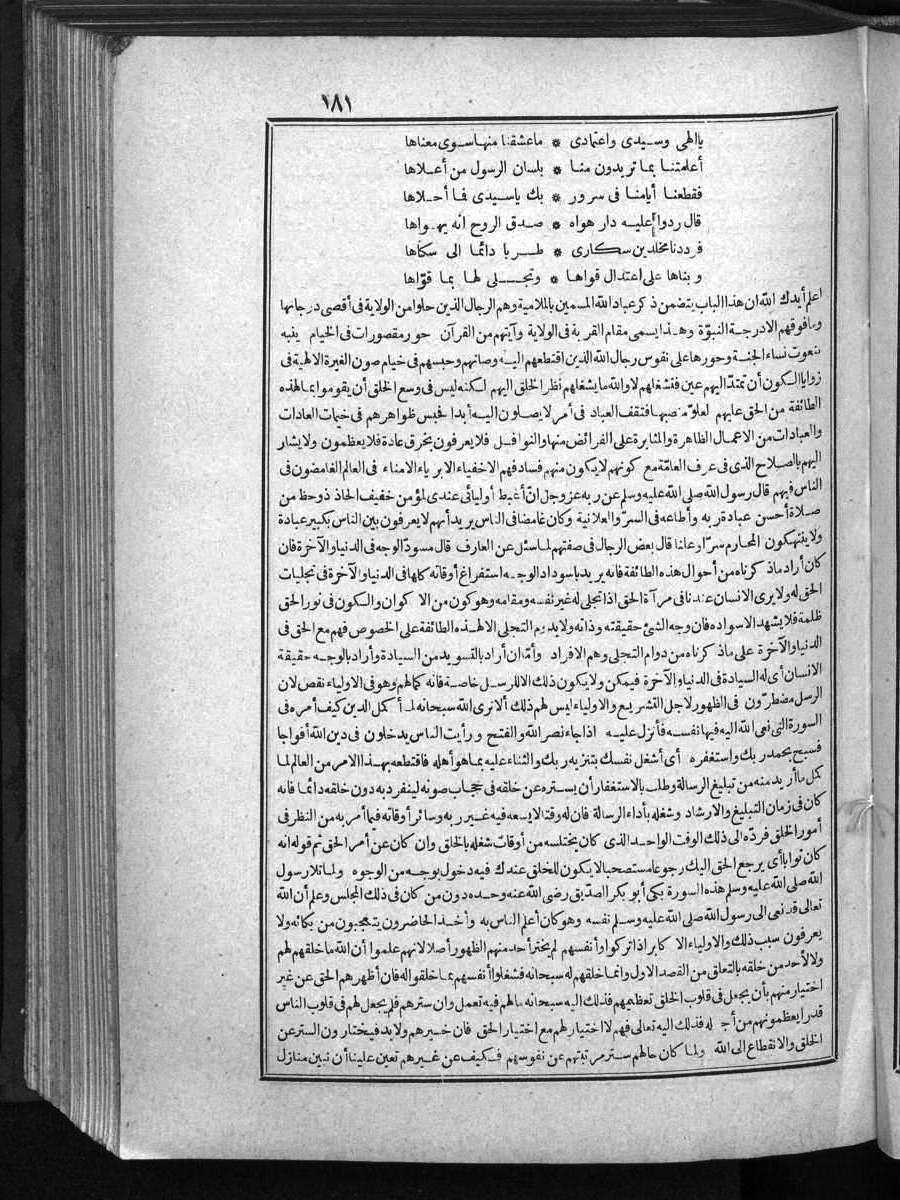 ١٨١
يا الهي وسيدى واعتمادى * ما عشقنا منها سوى معناها
أعلمتنا بما تريدون منا * بلسان الرسول من أعلاها
فقطعنا أيامنا فى سرور * بك ياسيدى فما أحلاها
قال ردوا عليه دار هواه * صدق الروح انه يهواها
فرددنا مخلدين سكارى * طربا دائما الى سكناها
وبناها على اعتدال قواها * وتجلى لها بما قواها
اعلم أيدك الله ان هذا الباب يتضمن ذكر عباد الله المسمين بالملامية وهم الرجال الذين حلوا من الولاية فى أقصى درجاتها
وما فوقهم الا درجة النبوّة وهذا يسمى مقام القربة فى الولاية وآيتهم من القرآن حور مقصورات فى الخيام ينبه
بنعوت نساء الجنة وحورها على نفوس رجال الله الذين اقتطعهم اليه وصانهم وحبسهم فى خيام صون الغيرة الالهية فى
زوايا الكون أن تمتدّ اليهم عين فتشغلهم لا والله ما يشغلهم نظر الخلق اليهم لكنه ليس فى وسع الخلق أن يقوموا بما لهذه
الطائفة من الحق عليهم لعلوّ منصبها فتقف العباد فى أمر لا يصلون اليه أبدا فحبس ظواهرهم فى خيمات العادات
والعبادات من الاعمال الظاهرة والمثابرة على الفرائض منها والنوافل فلا يعرفون بخرق عادة فلا يعظمون ولا يشار
اليهم بالصلاح الذى فى عرف العامّة مع كونهم لا يكون منهم فساد فهم الاخفياء الابرياء الامناء فى العالم الغامضون فى
الناس فيهم قال رسول الله صلى الله عليه وسلم عن ربه عز وجل انّ أغبط أوليائى عندى لمؤمن خفيف الحاذ ذو حظ من
صلاة أحسن عبادة ربه وأطاعه فى السرّ والعلانية وكان غامضا فى الناس يريد أنهم لا يعرفون بين الناس بكبير عبادة
ولا ينتهكون المحارم سرّا وعلنا قال بعض الرجال فى صفتهم لما سئل عن العارف قال مسودّ الوجه فى الدنيا والآخرة فان
كان أراد ما ذكرناه من أحوال هذه الطائفة فانه يريد باسوداد الوجه استفراغ أوقاته كلها فى الدنيا والآخرة فى تجليات
الحق له ولا يرى الانسان عندنا فى مرآة الحق اذا تجلى له غير نفسه ومقامه وهو كون من الاكوان والكون فى نور الحق
ظلمة فلا يشهد الا سواده فان وجه الشئ حقيقته وذاته ولا يدوم التجلى الا لهذه الطائفة على الخصوص فهم مع الحق فى
الدنيا والآخرة على ما ذكرناه من دوام التجلى وهم الافراد وأمّا ان أراد بالتسويد من السيادة وأراد بالوجه حقيقة
الانسان أى له السيادة فى الدنيا والآخرة فيمكن ولا يكون ذلك الا للرسل خاصة فانه كمالهم وهو فى الاولياء نقص لان
الرسل مضطرّون فى الظهور لاجل التشريع والاولياء ليس لهم ذلك ألا ترى الله سبحانه لما أكمل الدين كيف أمره فى
السورة التى نعى الله اليه فيها نفسه فأنزل عليه اذا جاء نصر الله والفتح ورأيت الناس يدخلون فى دين الله أفواجا
فسبح بحمد ربك واستغفره أى أشغل نفسك بتنزيه ربك والثناء عليه بما هو أهله فاقتطعه بهذا الامر من العالم لما
كمل ما أريد منه من تبليغ الرسالة وطلب بالاستغفار أن يستره عن خلقه فى حجاب صونه لينفرد به دون خلقه دائما فانه
كان فى زمان التبليغ والارشاد وشغله بأداء الرسالة فان له وقتا لا يسعه فيه غير ربه وسائر أوقاته فيما أمر به من النظر فى
أمور الخلق فردّه الى ذلك الوقت الواحد الذى كان يختلسه من أوقات شغله بالخلق وان كان عن أمر الحق ثم قوله انه
كان توابا أى يرجع الحق اليك رجوعا مستصحبا لا يكون للخلق عندك فيه دخول بوجه من الوجوه ولما تلا رسول
الله صلى الله عليه وسلم هذه السورة بكى أبو بكر الصدّيق رضى الله عنه وحده دون من كان فى ذلك المجلس وعلم أن الله
تعالى قد نعى الى رسول الله صلى الله عليه وسلم نفسه وهو كان أعلم الناس به وأخذ الحاضرون يتعجبون من بكائه ولا
يعرفون سبب ذلك والاولياء الاكابر اذا تركوا وأنفسهم لم يختر أحد منهم الظهور أصلا لانهم علموا أن الله ما خلقهم لهم
ولا لأحد من خلقه بالتعلق من القصد الاول وانما خلقهم له سبحانه فشغلوا أنفسهم بما خلقوا له فان أظهرهم الحق عن غير
اختيار منهم بأن يجعل فى قلوب الخلق تعظيمهم فذلك اليه سبحانه ما لهم فيه تعمل وان سترهم فلم يجعل لهم فى قلوب الناس
قدرا يعظمونهم من أجله فذلك اليه تعالى فهم لا اختيار لهم مع اختيار الحق فان خيرهم ولا بد فيختارون الستر عن
الخلق والانقطاع الى الله ولما كان حالهم ستر مرتبتهم عن نفوسهم فكيف عن غيرهم تعين علينا أن نبين منازل